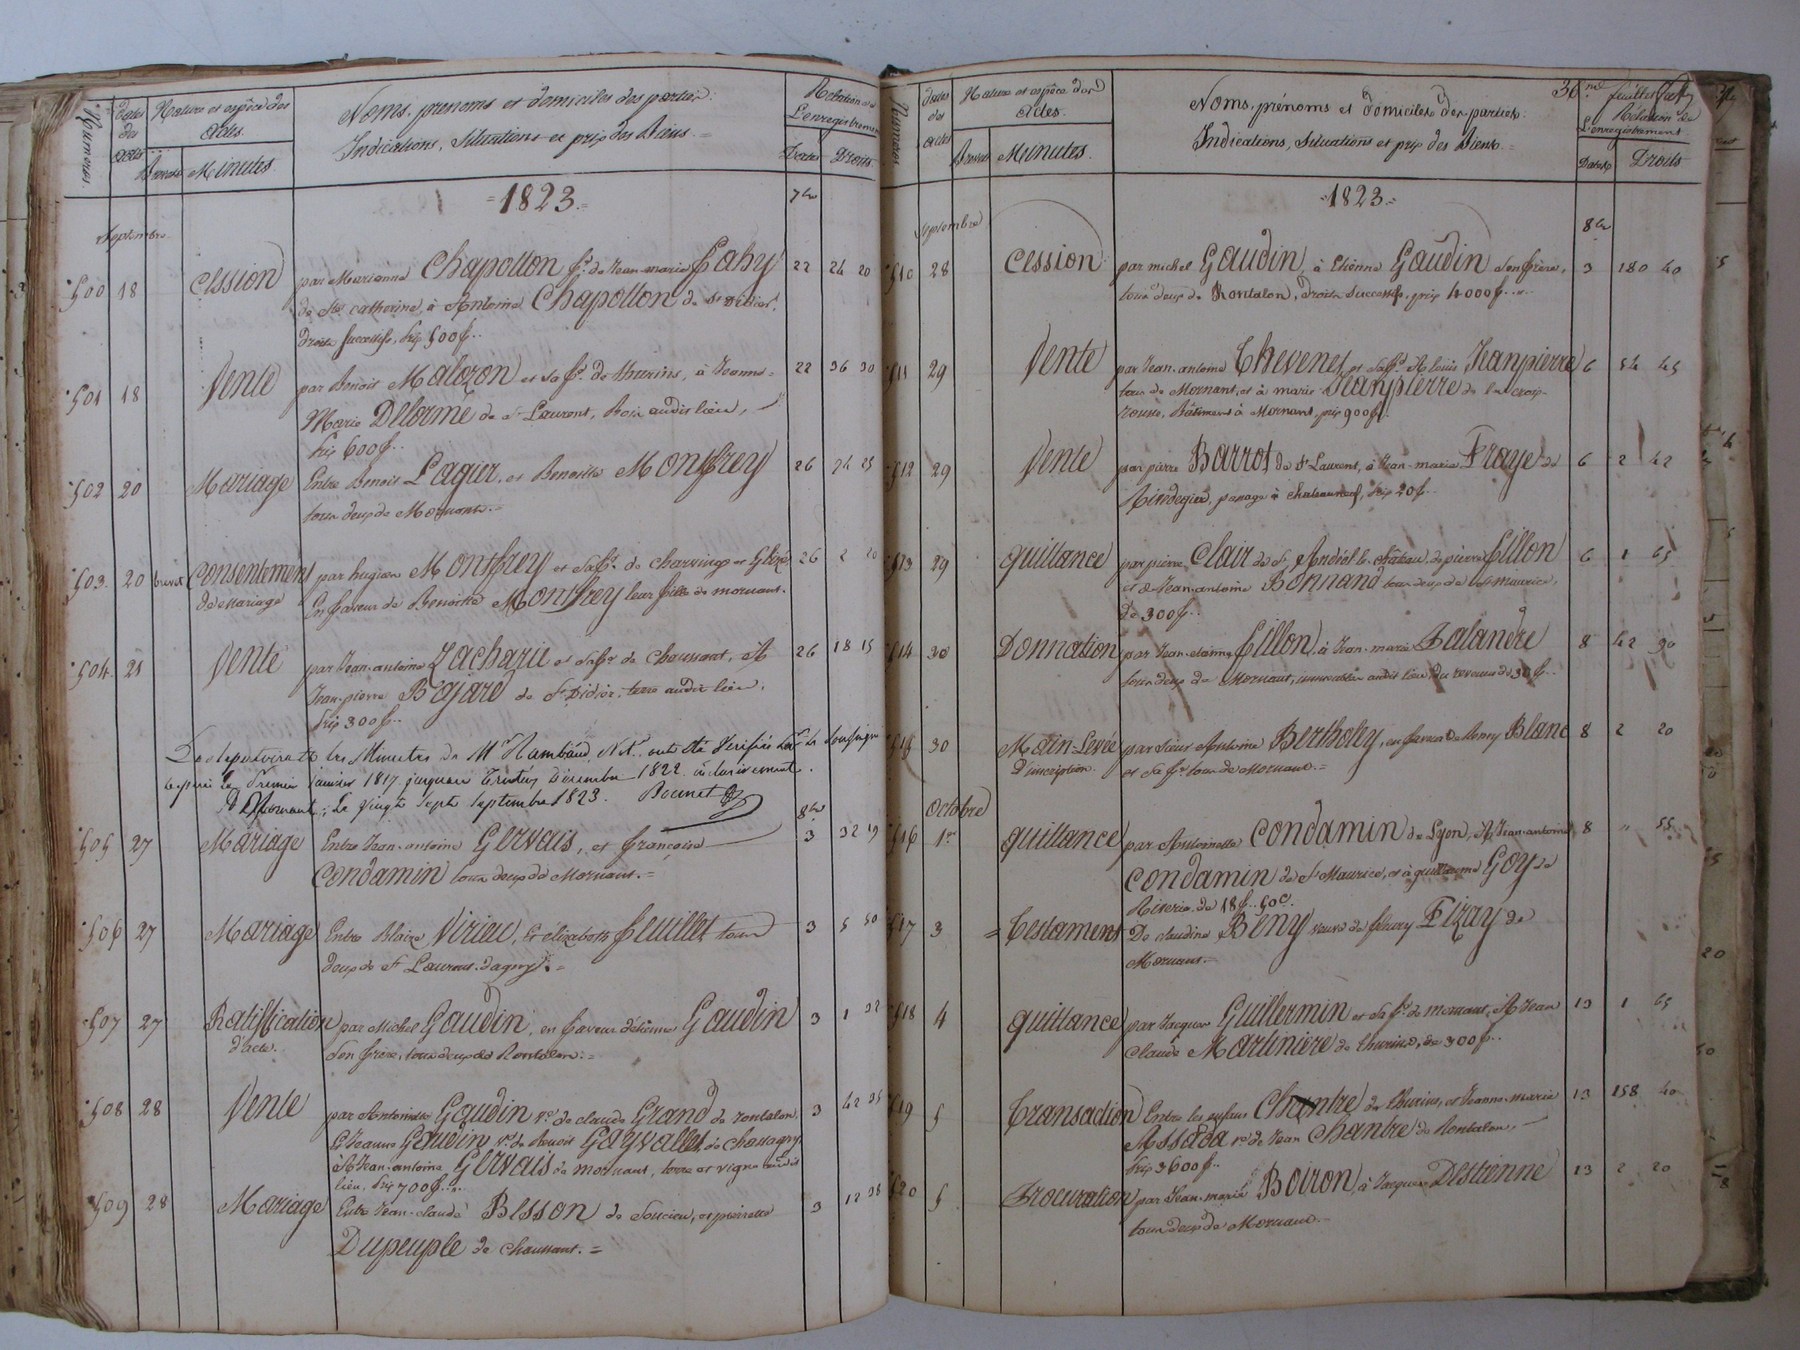 Numéros
dates des actes
Nature et espèce des Actes.
Brevets Minutes.
Noms, prénoms et domiciles des parties.
Indications, Situations et prix des Biens.=
Relation de L'enregistrement
Dates Droits
=1823.=
7bre
Septembre
500 18 Cession par Marianne Chapotton fe. de Jean-marie Fahy 22 24 20
de Ste. catherine, à Antoine Chapotton de St Didier,
droits successifs, prix 500f..
501 18 Vente par Benoit Malozon et sa fe. de thurins, à Jeanne= 22 36 30
Marie Delorme de St Laurent, Bois audit lieu,
prix 600f..
502 20 Mariage Entre Benoit Lagier, et Benoitte Monffrey 26 24 25
tous deux de Mornant.=
503. 20 brevet Consentement par hugues Monffrey et sa fe. de 26 2 20
de Mariage En faveur de Benoitte Monffrey leur fille de mornant.
504 21 Vente par Jean-antoine Zacharie et sa fe. de Chaussant, à 26 18 15
Jean-pierre Bajard de St Didier, terre audit lieu,
prix 300f..
Le répertoire et les Minutes de Me Rambaud, Nre. ont été Vérifiés par le soussigné
depuis le Premier janvier 1817 jusqu'au trente un décembre 1822 inclusivement.
A Mornant, Le Vingt Sept Septembre 1823.
8bre
505 27 Mariage Entre Jean-antoine Gervais, et françoise 3 32 19
Condamin tous deux de Mornant.=
506 27 Mariage Entre Blaize Virieu, Et élizabeth feuillet tous 3 5 50
deux de St Laurent-dagny.=
507 27 Ratiffication par Michel Gaudin, en faveur d'étienne Gaudin 3 1 32
d'acte. Son frère, tous deux de Rontalon.=
508 28 Vente par Antoinette Gaudin ve. de claude Grand de rontalon, 3 42 35
Et Jeanne Gaudin ve. de Benoit Gayvallet, de Chassagny
à Jean-antoine Gervais de mornant, terre et vigne audit
lieu, prix 700f..
509 28 Mariage Entre Jean-claude Besson de Soucieu, et pierrette 3 12 35
Dupeuple de Chaussant.=
Numéros
dates des actes
Nature et espèce des Actes.
Brevets Minutes.
36me feuillet
Noms, prénoms et domiciles des parties.
Indications, Situations et prix des Biens.=
Relation de L'enregistrement
Dates Droits
=1823.=
Septembre 8bre
510 28 Cession par michel Gaudin, à Etienne Gaudin son frère, 3 180 40
tous deux de Rontalon, droits Successifs, prix 4000f..
511 29 Vente par Jean-antoine Thevenet et sa fe. Jeanpierre 6 54 45
tous de Mornant, et à marie Jeanpierre de la croix-
rousse, Bâtiment à Mornant, prix 900f..
512 29 Vente par pierre Barrot de St Laurent, à Jean-marie Fraye de 6 2 42
passage à chateauneuf, prix 20f..
513 29 quittance par pierre Clair de St Andéol-le-château, de pierre fillon 6 1 65
et de Jean-antoine Bonnand tous deux de St maurice,
de 300f..
514 30 Donnation par Jean-étienne fillon, à Jean-marie Balandre 8 42 90
tous deux de Mornant, immeubles audit lieu, du revenu de 30f..
515 30 Main-Levée par sieur Antoine Bertholey, en faveur de Blanc 8 2 20
D'inscription. et sa fe. tous de Mornant.=
Octobre
516 1er quittance par Antoinette Condamin de Lyon, A Jean-antoine 8 " 55
Condamin de St Maurice, et à guillaume Goy de
Riverie, de 18f. 50c.
517 3 = testament De claudine Beny veuve de fleury Fizay de
Mornant.=
518 4 quittance par Jacques Guillermin et sa fe. de mornant, A Jean 13 1 65
claude Martinière de thurins, de 300f..
519 5 transaction Entre les enfans Chantre de thurins, et Jeanne-marie 13 158 40
Assada ve. de Jean Chantre de Rontalon,
prix 3600f..
520 5 Procuration par Jean-marie Boiron, à Jacques Destienne 13 2 20
tous deux de Mornant.=